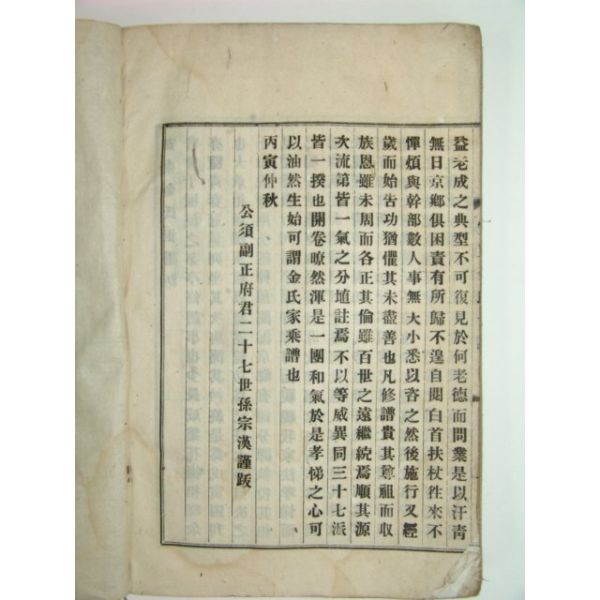 益老成之典型不可復見於何老德而問業是以汗靑
無日京鄕俱困責有所歸不遑自閑白首扶杖徃來不
憚煩與幹部數人事無大小悉以咨之然後施行又經
歲而始告功猶懼其未盡善也凡修譜貴其尊祖而収
族恩雖未周而各正其倫雖百世之遠繼統焉順其源
次流第皆一氣之分埴註焉不以等威異同三十七派
皆一揆也開卷暸然渾是一團和氣於是孝悌之心可
以油然生始可謂金氏家乘譜也
丙寅仲秋
公須副正府君二十七世孫宗漢謹跋